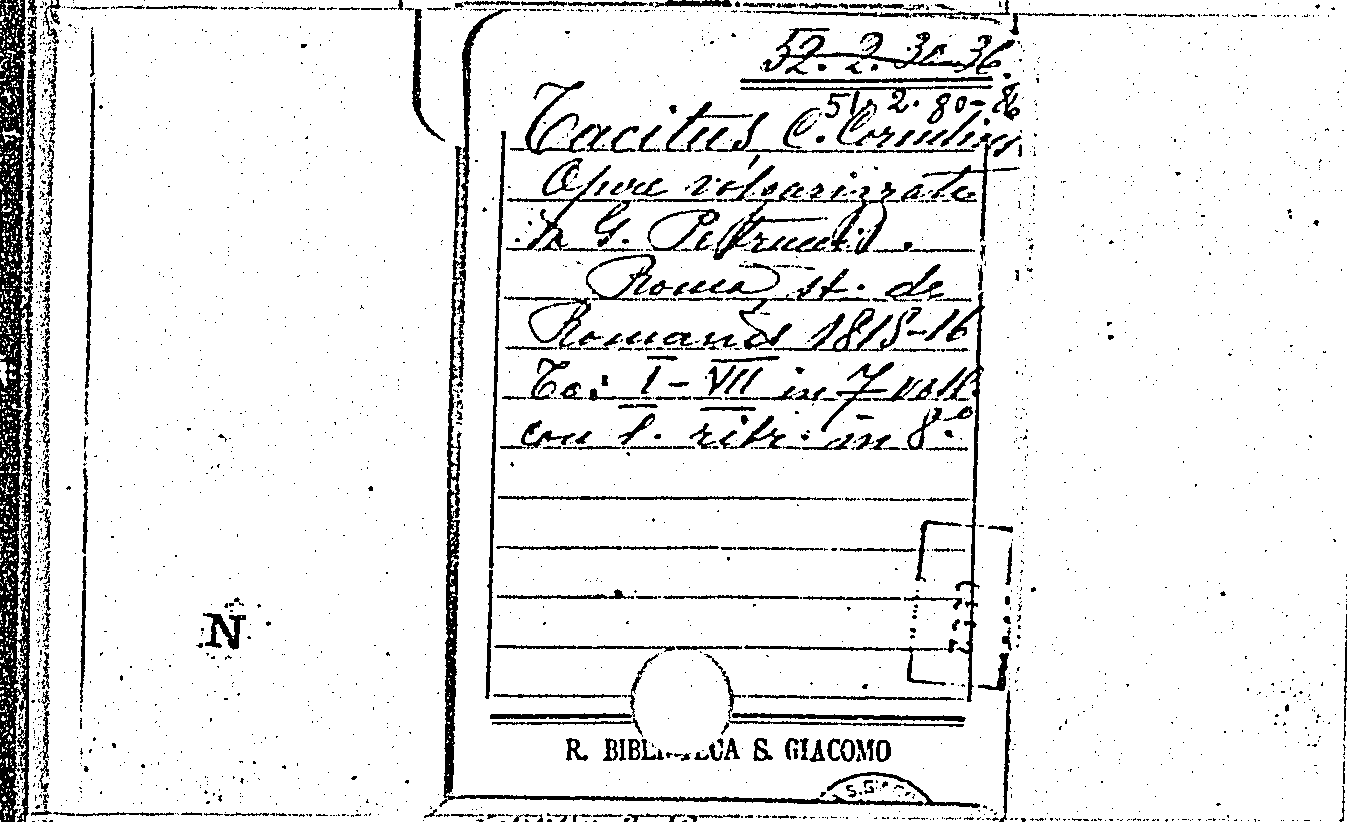 52. 2. 30-36.
51. 2. 80-86
Tacitus C. Cornelius
Opere volgarizzate
da G. Petrucci.
Roma st. de
Romanis 1815-16
To: I - VII in 7 voll.
con l. ritr. in 8.°
N
R. BIBLIOTECA S. GIACOMO
S. GIACO